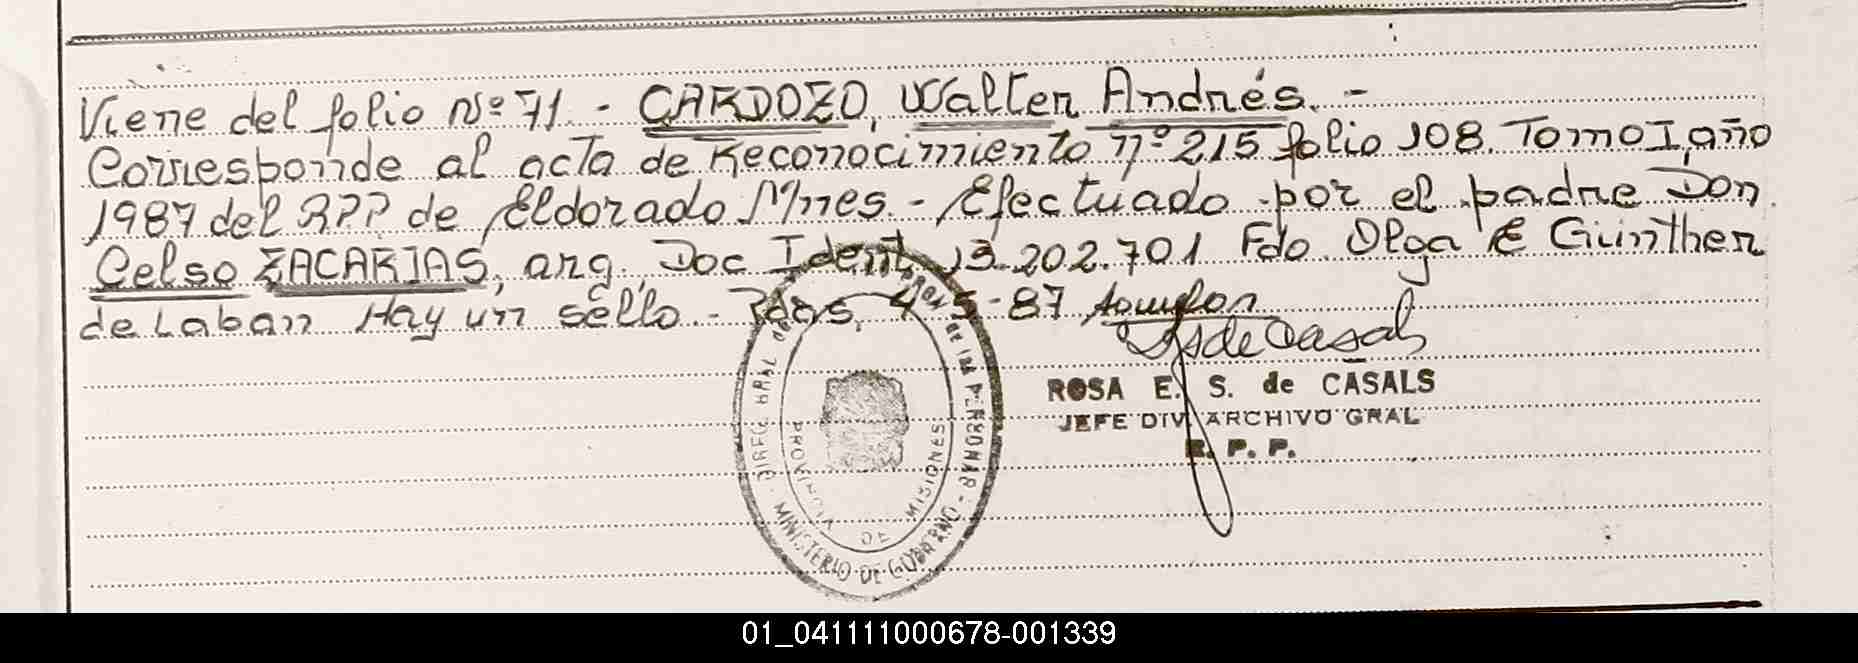 Viene del folio Nº 71 - CARDOZO, Walter Andrés. -
Corresponde al acta de Reconocimiento nº 215 folio 108. Tomo I, año
1987 del RPP de Eldorado Mnes. - Efectuado por el padre Don
Celso ZACARIAS, arg. Doc Ident. 13.202.701 Fdo. Olga E Günther
de Laban Hay un sello. - Pdas, 4-5-87
ROSA E. S. de CASALS
JEFE DIV. ARCHIVO GRAL
R. P. P.
PROVINCIA DE MISIONES
MINISTERIO DE GOBIERNO
01_041111000678-001339